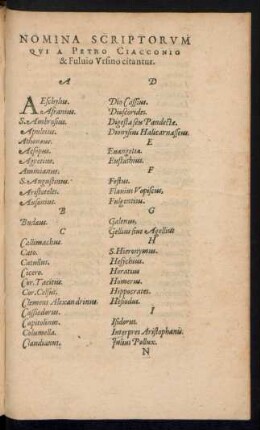 NOMINA SCRIPTORVM
QVI A PETRO CIACCONIO
& Fuluio Vrsino citantur.
A
AEschylus.
Afranius.
S. Ambrosius.
Apuleius.
Athenæus.
Aesopus.
Agrætius.
Ammianus.
S. Augustinus.
Aristoteles.
Ausonius.
B
Budæus.
C
Callimachus.
Cato.
Catullus.
Cicero.
Cor. Tacitus.
Cor. Celsus.
Clemens Alexandrinus.
Cassiodorus.
Capitolinus.
Columella.
Claudianus.
D
Dio Cassius.
Dioscorides.
Digesta seu Pandectæ.
Dionysius Halicarnasseus.
E
Euangelia.
Eustathius.
F
Festus.
Flauius Vopiscus.
Fulgentius.
G
Galenus.
Gellius siue Agellius
H
S. Hieronymus.
Hesychius.
Horatius
Homerus.
Hippocrates.
Hesiodus.
I
Isidorus.
Interpres Aristophanis.
Iulius Pollux.
N